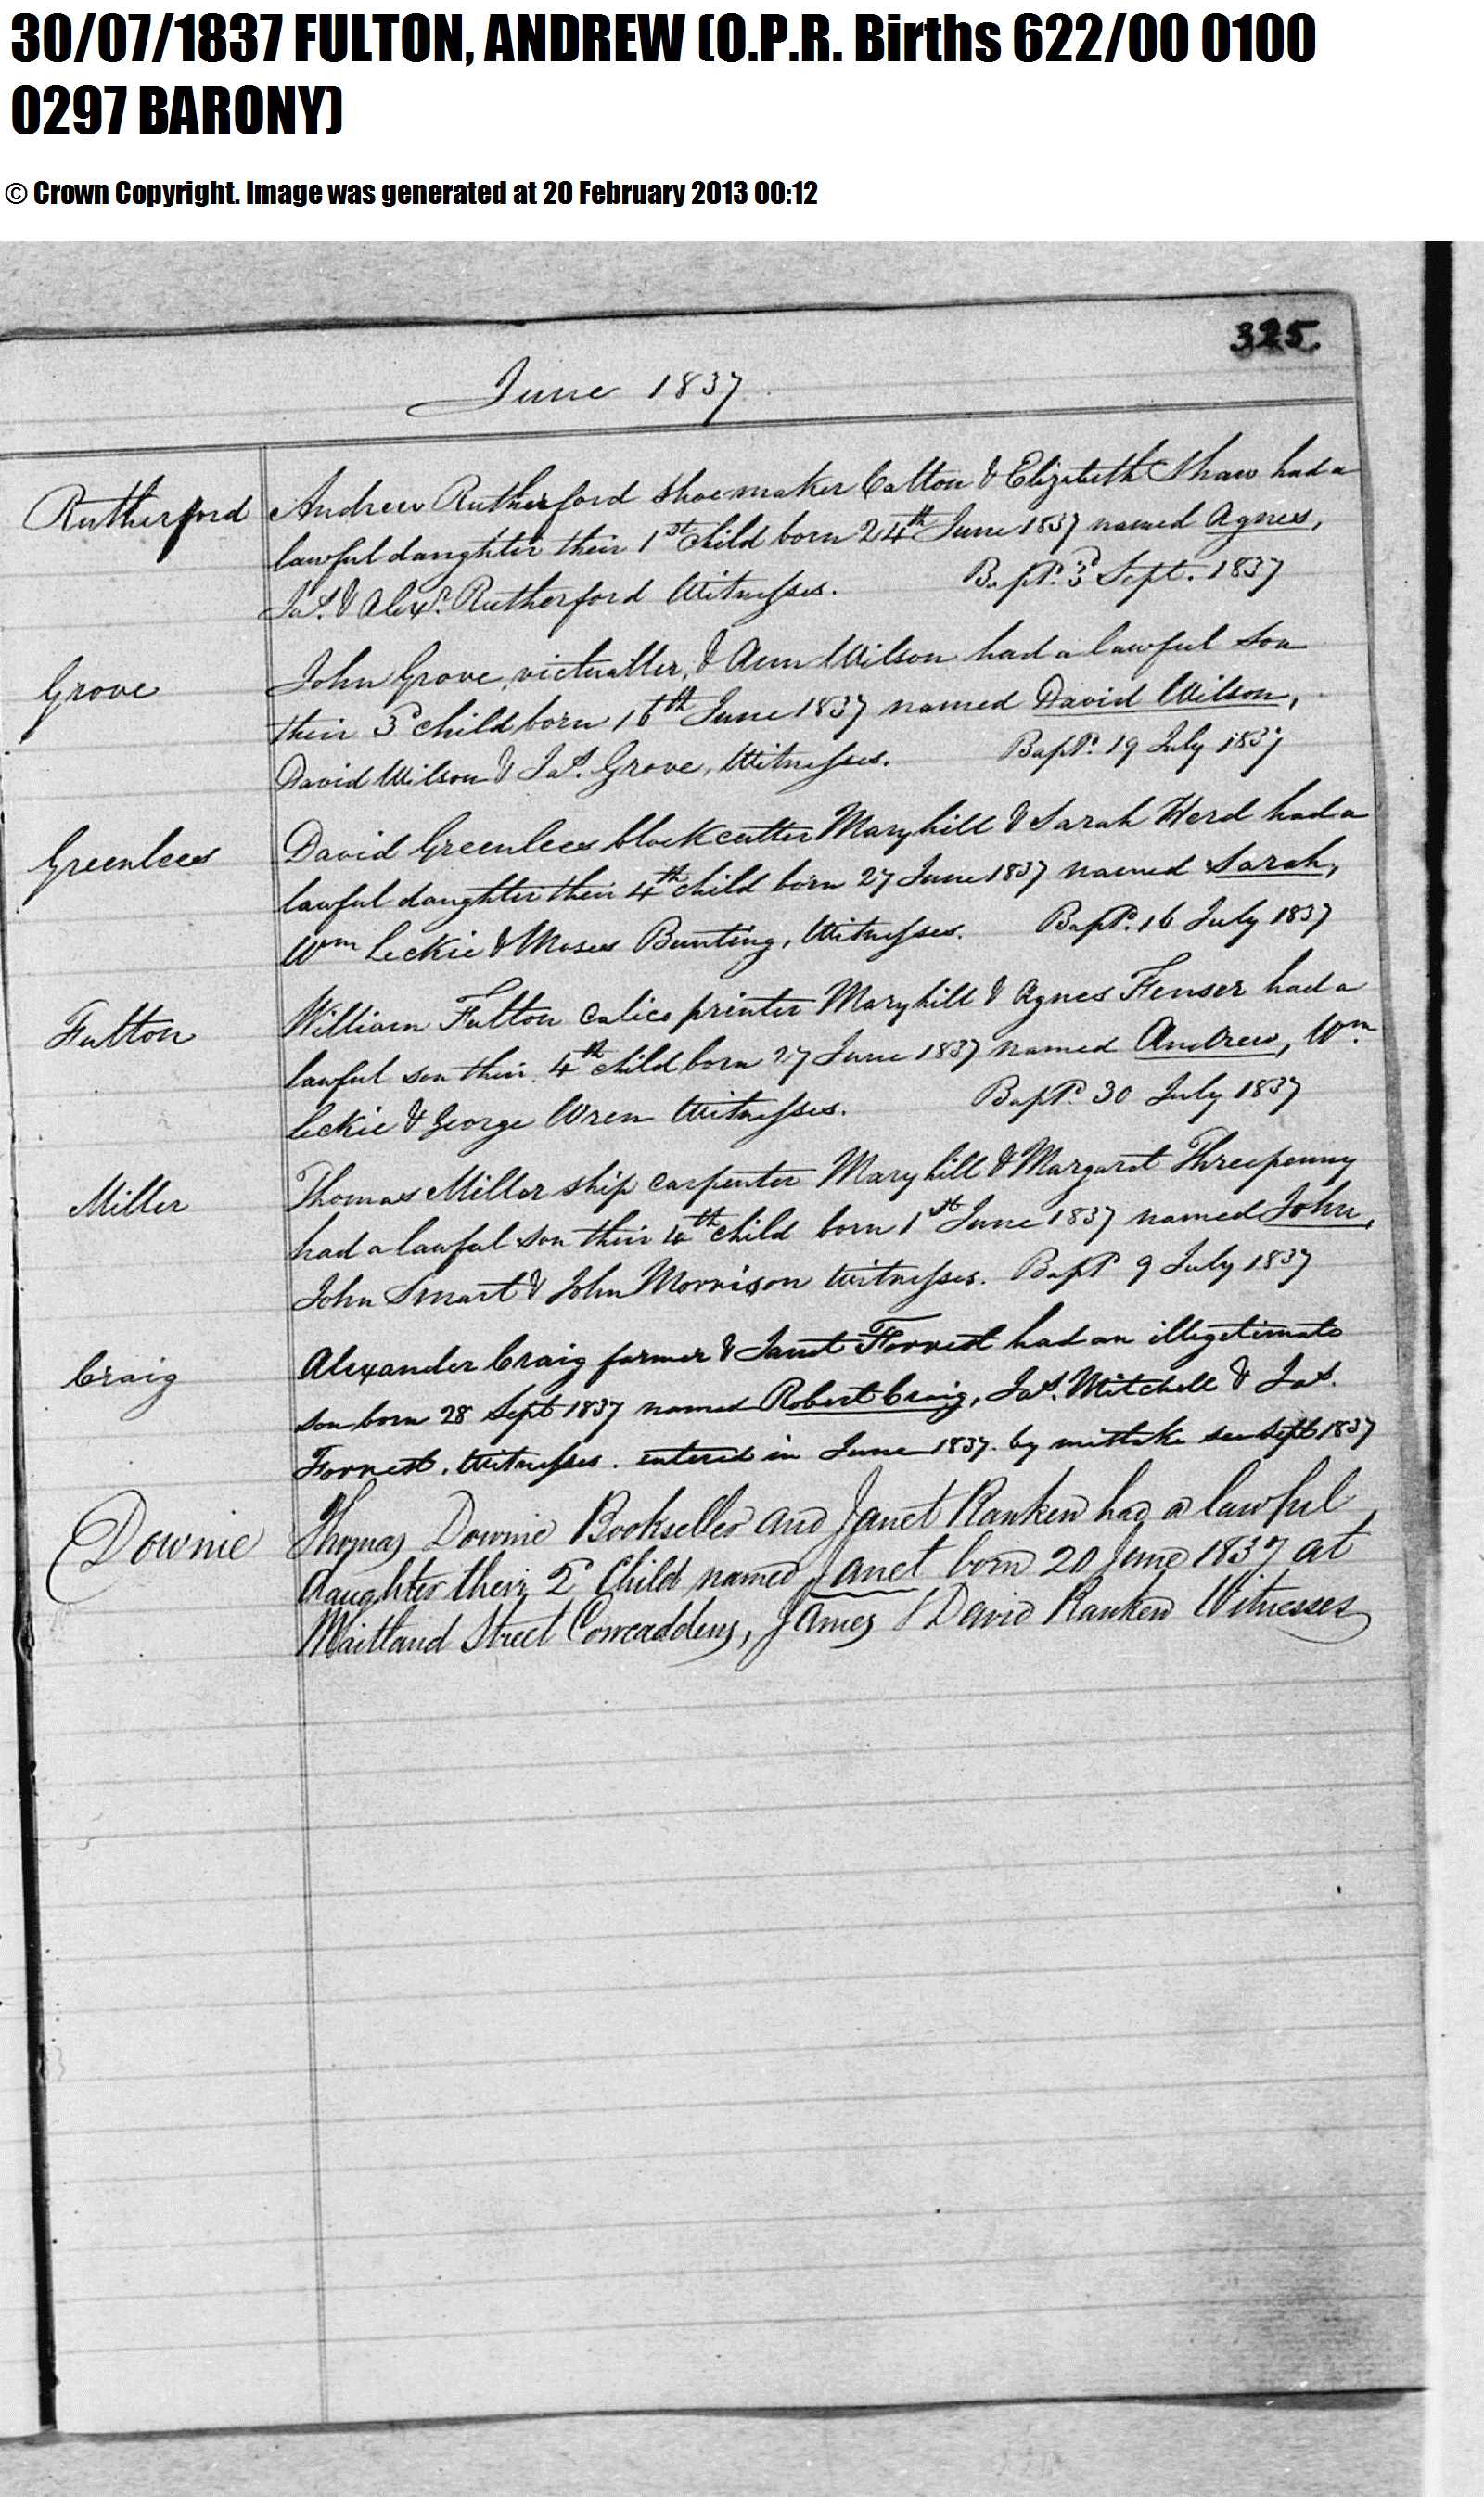 30/07/1837 FULTON, ANDREW (O.P.R. Births 622/00 0100
0297 BARONY)
© Crown Copyright. Image was generated at 20 February 2013 00:12
325.
June 1837
Rutherford Andrew Rutherford Shoemaker Calton & Elizabeth Shaw had a
lawful daughter their 1st child born 24th June 1837 named Agnes,
Jas. & Alexr. Rutherford Witnesses. Bapd. 3d Sept. 1837
Grove John Grove, victualler, & Ann Wilson had a lawful son
their 3d child born 16th June 1837 named David Wilson,
David Wilson & Jas. Grove, Witnesses. Bapd. 19 July 1837
Greenlees David Greenlees block cutter Maryhill & Sarah Herd had a
lawful daughter their 4th child born 27 June 1837 named Sarah,
Wm Leckie & Moses Bunting, Witnesses. Bapd. 16 July 1837
Fulton William Fulton Calico printer Maryhill & Agnes Fenser had a
lawful son their 4th child born 27 June 1837 named Andrew, Wm.
Leckie & George Wren Witnesses. Bapd. 30 July 1837
Miller Thomas Miller ship carpenter Maryhill & Margaret Threepenny
had a lawful son their 4th child born 1st June 1837 named John,
John Smart & John Morrison Witnesses. Bapd 9 July 1837
Craig Alexander Craig farmer & Janet Forrest had an illegitimate
son born 28 Sept 1837 named Robert Craig, Jas. Mitchell & Jas.
Forrest, Witnesses. entered in June 1837. by mistake see Sept 1837
Downie Thomas Downie Bookseller and Janet Ranken had a lawful
daughter their 2d Child named Janet born 20 June 1837 at
Maitland Street Cowcaddens, James & David Ranken Witnesses